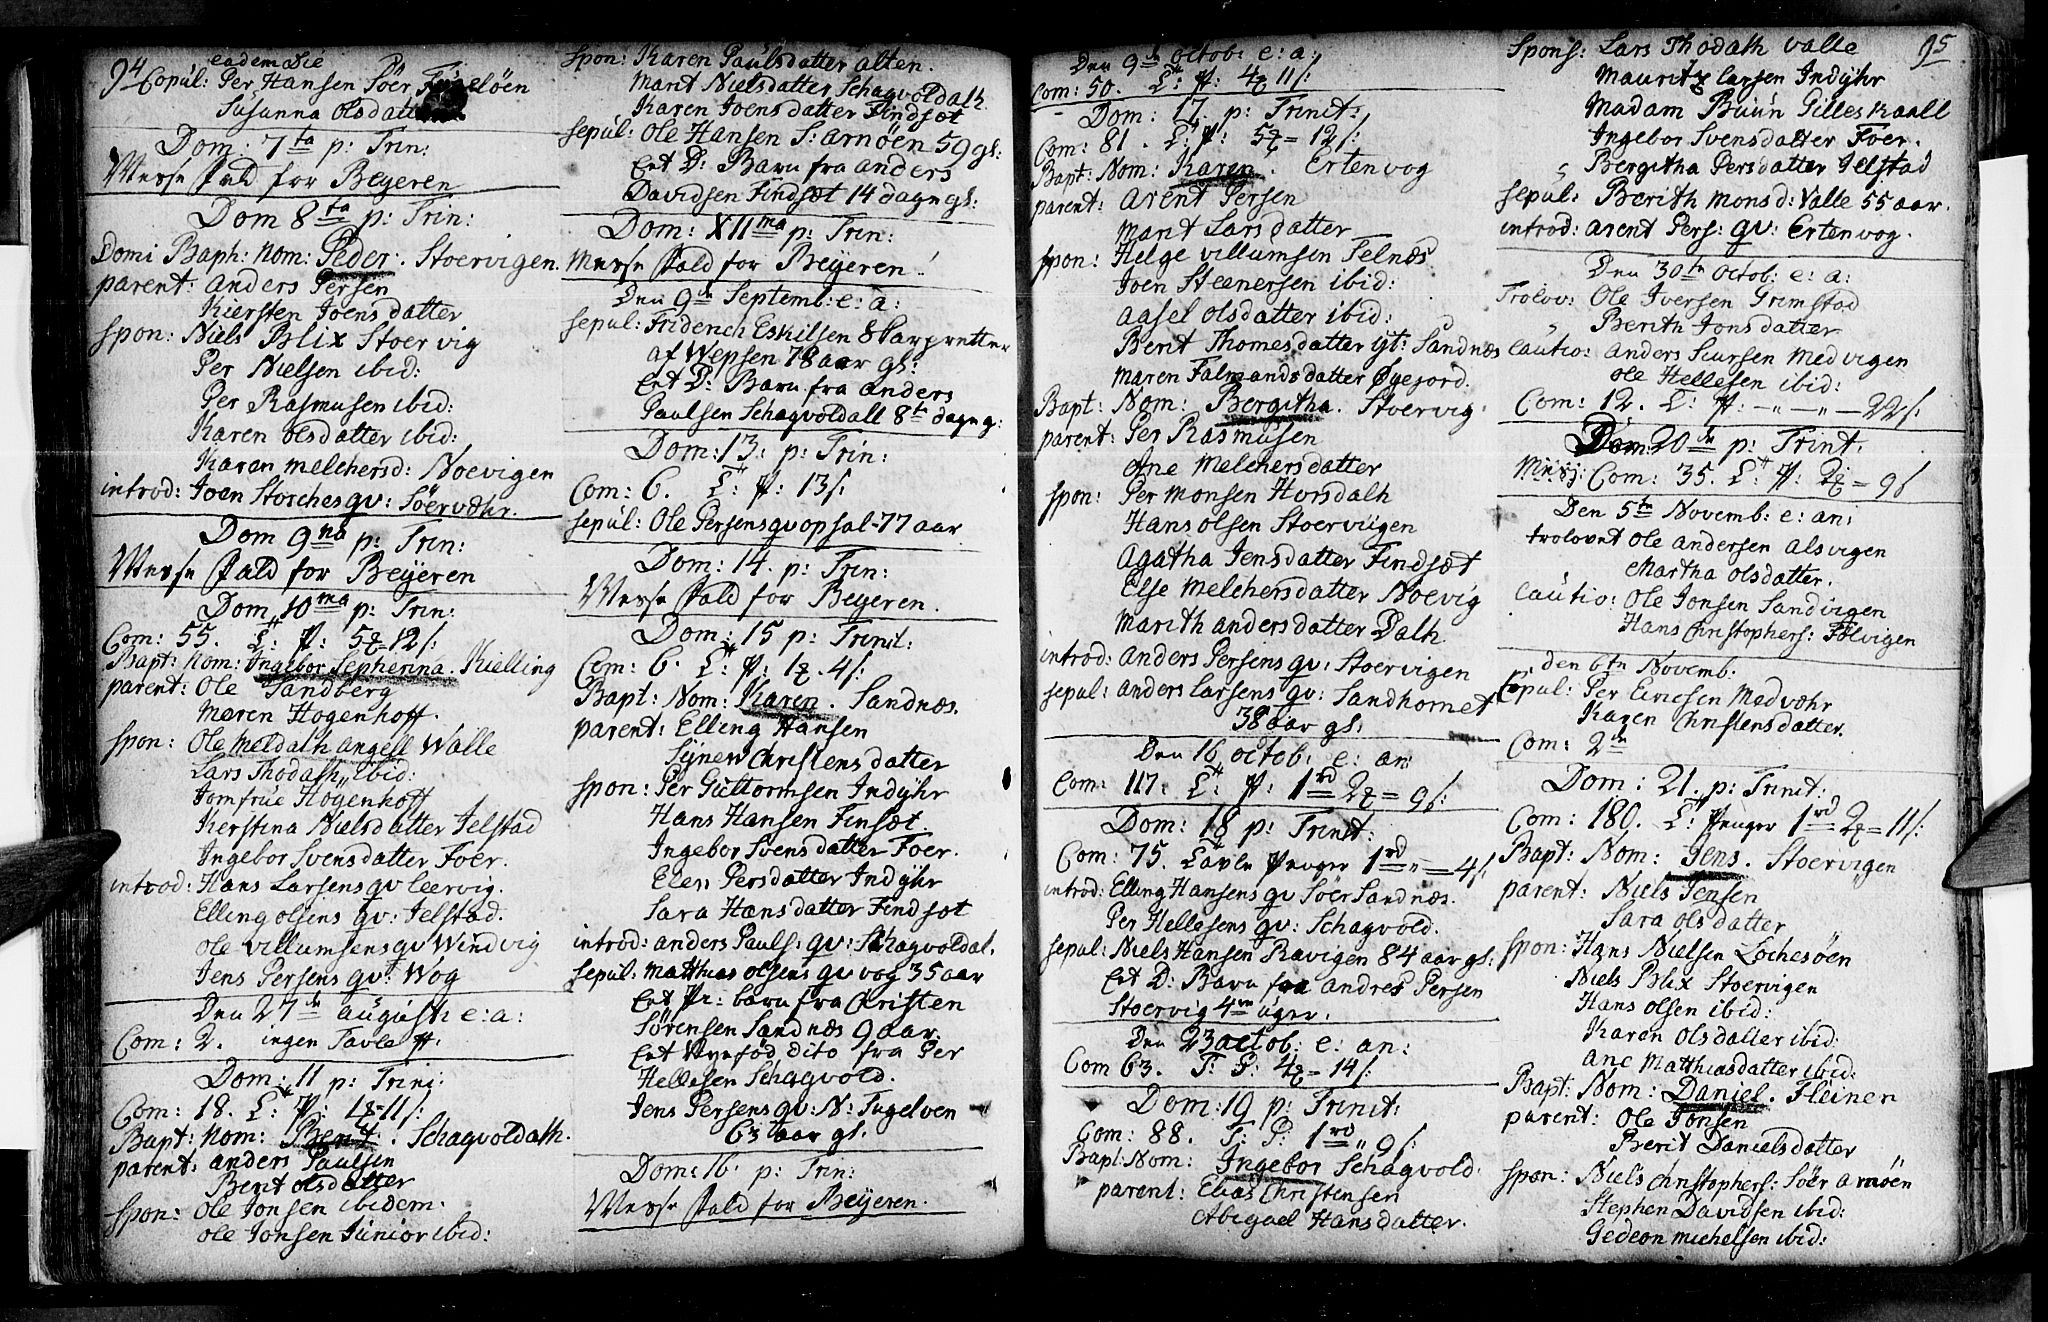 94
eadem die
Copul: Per Hansen Söer Fugelöen
Susanna Olsdatter
Dom: 7ta p: Trin:
Messe fald for Beyeren
Dom 8ta p: Trin:
Domi Baph: Nom: Peder. Stoervigen.
parent: Anders Persen
Kiersten Joensdatter
spon: Niels Blix Stoervig
Per Nielsen ibid:
Per Rasmusen ibid:
Karen Olsdatter ibid:
Karen Melchersd: Noevigen
introd: Joen Storches qv: Söervæhr.
Dom 9na p: Trin:
Messe fald for Beyeren
Dom 10ma p: Trin:
Com: 55. L: P: 5 12 s:
Bapt: Nom: Ingebor Sepherina. Kielling
parent: Ole Sandberg
Maren Hogenhoff.
spon: Ole Meldalh Angell Walle
Lars Thodalh ibid:
Jomfrue Högenhoff
Kerstina Nielsdatter Jelstad
Ingebor Svensdatter Foer.
introd: Hans Larsens qv Leervig.
Elling Olsens qv: Jelstad.
Ole Villumsens qv Windvig
Jens Persens qv: Wog
Den 27de August: e: a:
Com: 2. ingen Tavle
Dom: 11 p: Trini:
Com: 18. L: P: 1 11 s:
Bapt: Nom: Berit. Schagvoldalh.
parent: Anders Paulsen
Berit Olsdatter
spon: Ole Jonsen ibidem.
Ole Jonsen Junior ibid:
spon: Karen Paulsdatter Alten.
Marit Nielsdatter Schagvoldalh
Karen Joensdatter Findsæt
sepul: Ole Hansen S: Arnöen 59 gl:
Eet D: Barn fra Anders
Davidsen Findsæt 14 dagn gl:
Dom: XIIma p: Trin:
Messe fald for Beyeren.
Den 9de Septemb: e: a:
sepul: Friderich Eskilsen
af Wepsen 78 aar gl:
Eet D: Barn fra Anders
Paulsen Schagvoldall 8te dagn g:
Dom: 13: p: Trin:
Com: 6. L: P: 13 s:
sepul: Ole Persens qv opsal 77 aar
Dom: 14. p: Trin:
Messe fald for Beyeren.
Dom: 15 p: Trinit:
Com: 6. L: P: 1. 4 s:
Bapt: Nom: Karen. Sandnæs.
parent: Elling Hansen
Synev Christensdatter
spon: Per Guttormsen Indyhr
Hans Hansen Finsæt
Ingebor Svensdatter Foer.
Elen Persdatter Indyhr
Sara Hansdatter Findsæt
introd: Anders Pauls: qv: Schagvoldal.
sepul: Matthias Olsens qv Vog 35 aar
Eet Pi: barn fra Christen
Sörensen Sandnæs 9 aar.
Eet Nyefød dito fra Per
Hellesen Schagvold.
Jens Persens qv: N: Fugelöen
63 aar gl.
Dom: 16. p: Trin:
Messe fald for Beyeren.
Den 9de Octob: e: a:
Com: 50. L: P: 4 11 s:
Dom: 17. p: Trinit:
Com: 81. L: P: 5 = 12 s:
Bapt: Nom: Karen. Ertenvog
parent: Arent Persen
Marit Larsdatter
spon: Helge Villumsen Selnæs
Joen Steenersen ibid:
Aasel Olsdatter ibid:
Berit Thomesdatter igt: Sandnæs
Maren Falmandsdatter Øgefiord.
Bapt: Nom: Bergitha. Stoervig.
parent: Per Rasmusen
Ane Melchersdatter
spon: Per Monsen Horsdalh
Hans Olsen Stoervigen
Agatha Jensdatter Findsæt
Else Melchersdatter Noevig
Marith Andersdatter Dalh.
introd: Anders Persens qv: Stoervigen
sepul: Anders Larsens qv: Sandhornet
38 aar gl:
Den 16 Octob: e: an:
Com: 117: L: P: 1rd 2 = 9 s:
Dom: 18 p: Trinit:
Com: 75. Tavle Penger 1rd " = 4 s:
introd: Elling Hansens qv Söer Sandnæs.
Per Hellesens qv: Schagvold.
sepul: Niels Hansen Ravigen 84 aar gl:
Eet D: Barn fra Andres Persen
Stoervig 4re uger.
Den 23 Octob: e: an:
Com 63. T: P: 4 = 14 s:
Dom: 19 p: Trinit:
Com: 88. T: P: 1rd " 9 s:
Bapt: Nom: Ingebor Schagvold
parent: Elias Christensen
Abigael Hansdatter.
95
Spons: Lars Thodalh Valle
Mauritz Larsen Indyhr
Madam Buun Gilleskaall
Ingebor Svensdatter Foer.
Bergitha Persdatter Jelstad
sepul: Berith Monsd: Valle 55 aar.
introd: Arent Pers: qv: Ertenvog.
Den 30te Octob: e: a:
Trolov: Ole Iversen Grimstad
Berith Jonsdatter
Cautio: Anders Siursen Medvigen
Ole Hellesen ibid:
Com: 12. L: P: — " — " — 22 s:
Dom: 20de p: Trinit.
Com: 35. L: P: 2 = 9 s
Den 5te Novemb: e: an:
trolovet Ole Andersen Alsvigen
Martha Olsdatter.
Cautio: Ole Jonsen Sandvigen
Hans Christophers: Følvigen
den 6te Novemb:
Copul: Per Eirichsen Medvæhr
Karen Christensdatter.
Com: 2de
Dom: 21. p: Trinit:
Com: 180. L: Penger 1rd 2 = 11 s:
Bapt: Nom: Jens. Stoervigen
parent: Niels Jensen
Sara Olsdatter
spon: Hans Nielsen Lochesöen
Niels Blix Stoervigen
Hans Olsen ibid:
Karen Olsdatter ibid:
Ane Matthiasdatter ibid:
Bapt: Nom: Daniel. Fleinen
parent: Ole Jonsen
Berit Danielsdatter
spon: Niels Christophers: Söer Arnöen
Stephen Davidsen ibid:
Gedeon Michelsen ibid: